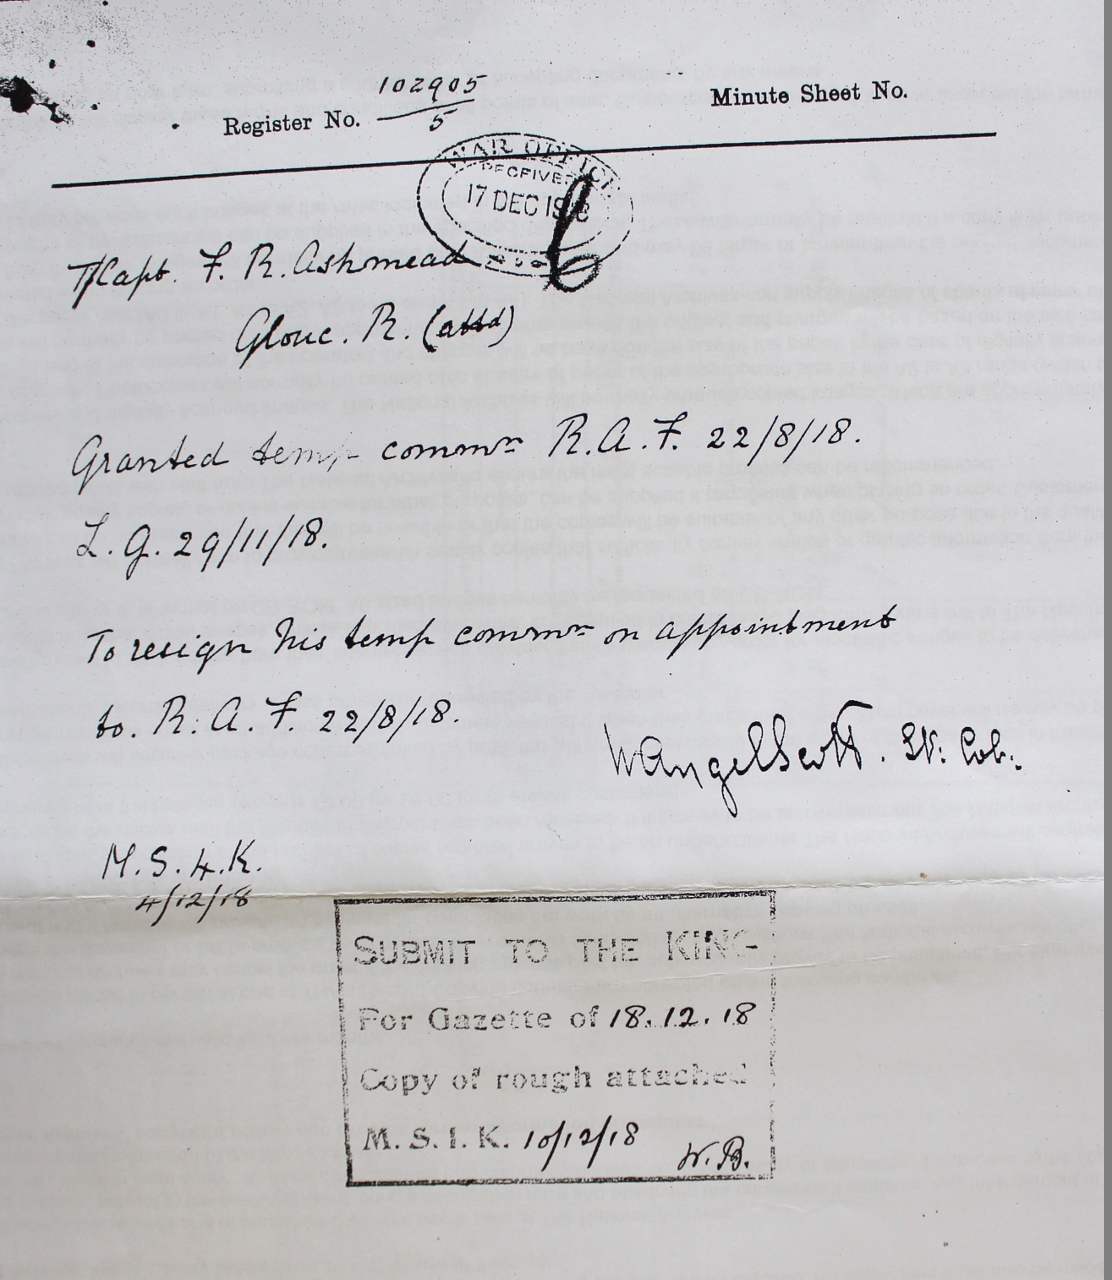 102905
5
Register No.
Minute Sheet No.
WAR OFFICE
RECEIVED
17 DEC 19
6
T/Capt. F. R. Ashmead
Glouc. R. (attd)
Granted temp commn R.A.F. 22/8/18.
L.G. 29/11/18.
To resign his temp commn on appointment
to. R.A.F. 22/8/18.
WAngelScott. Lt. Col.
M.S.4.K.
4/12/18
SUBMIT TO THE KING
For Gazette of 18.12.18
Copy of rough attached
M. S. 1. K. 10/12/18
W.B.